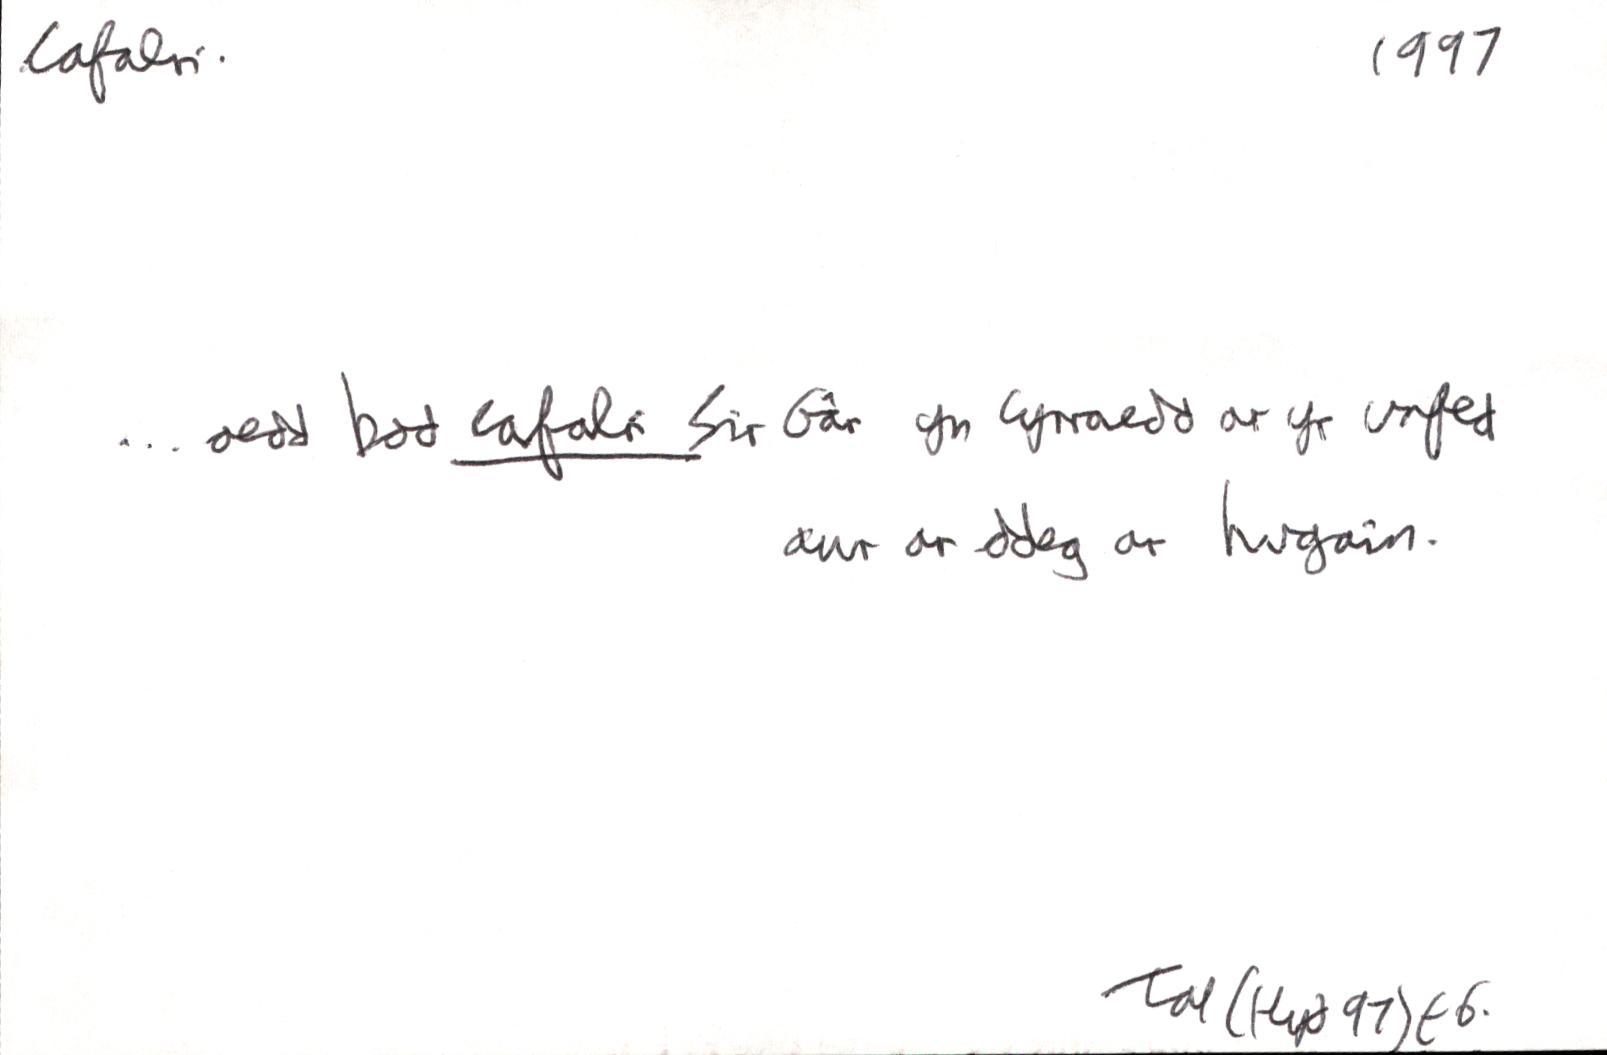 Cafalri. 1997
... oedd bod cafalri Sir Gâr yn cyrraedd ar yr unfed
awr ar ddeg ar hugain.
(Hyd 97) t 6.